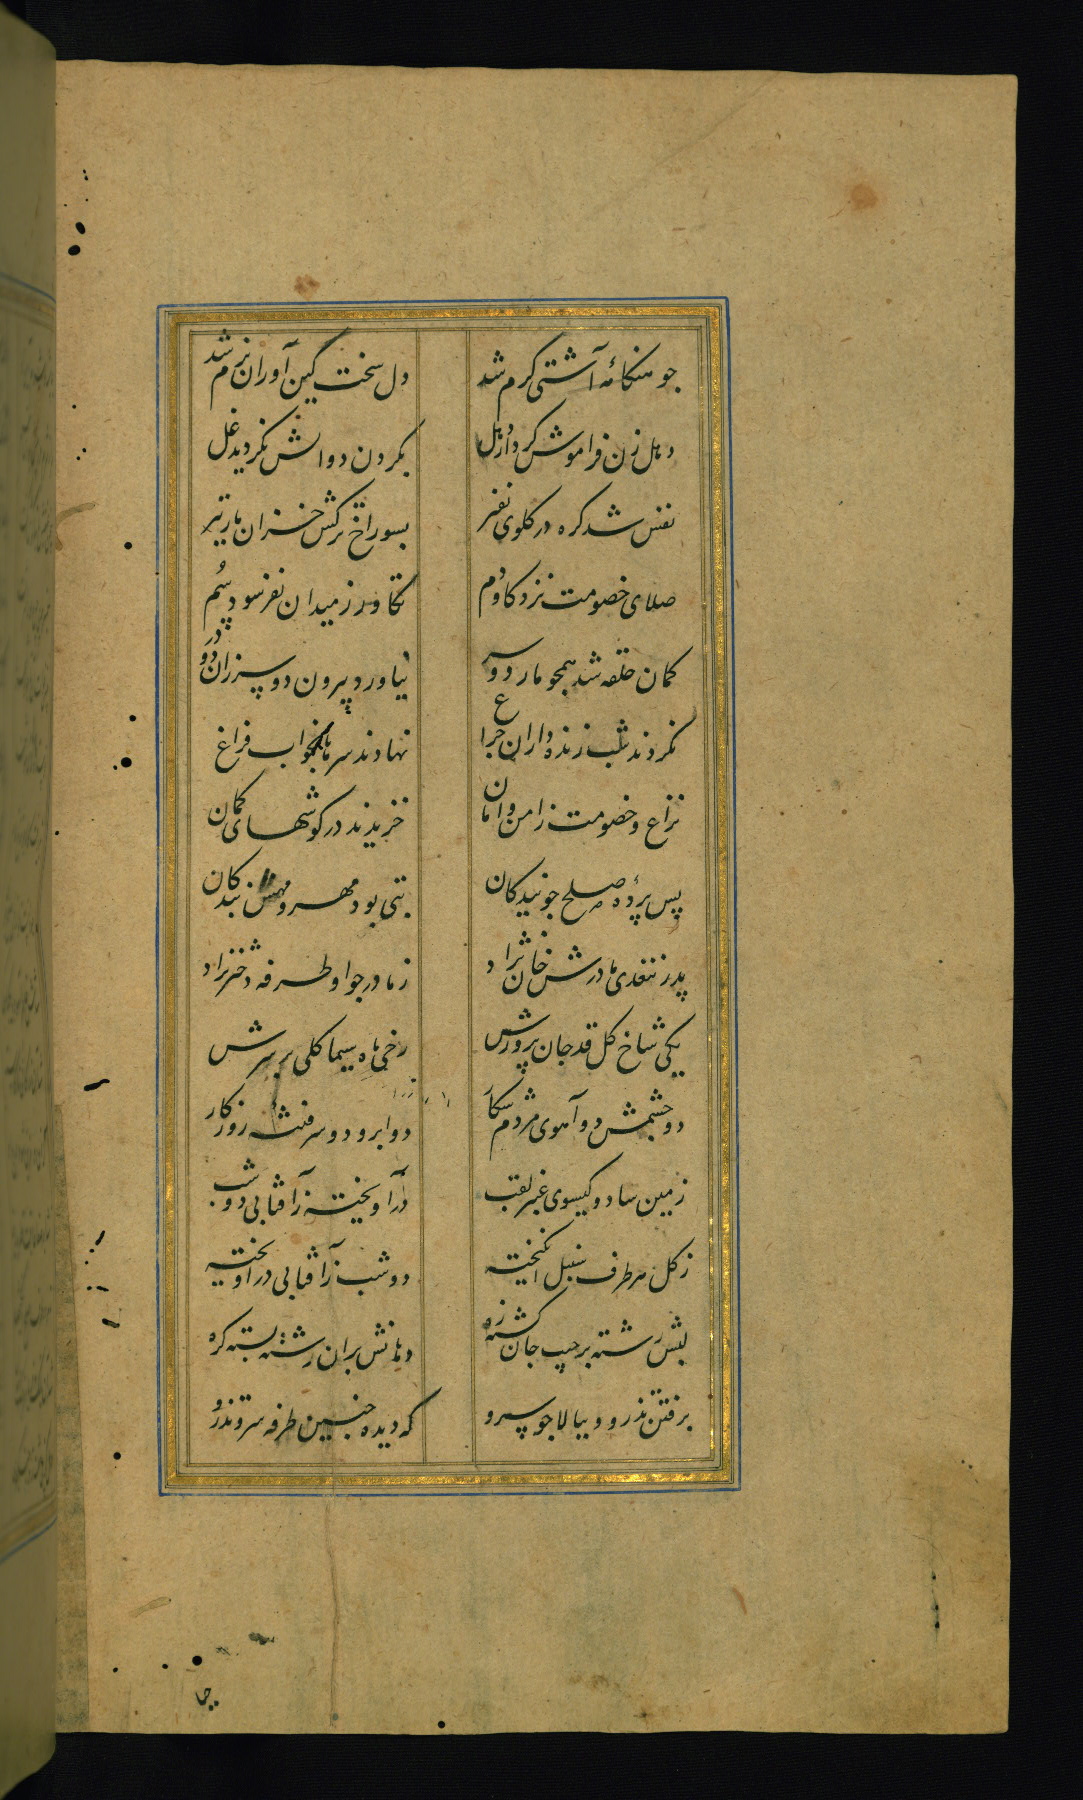 چو هنگامهٔ آشتی گرم شد دل سخت کین آوران نرم شد
دهل زن فراموش کرد از دهل بگردن دوالش نگردید غل
نفس شد گره در گلوی نفیر بسوراخ ترکش خزان مار تیر
صلای خصومت نزد گاو دم تکاور ز میدان نفرسود سم
کمان حلقه شد همچو مار دو سر نیاورد بیرون دو سر زان دو در
نکردند شب زنده داران چراغ نهادند سرها بخواب فراغ
نزاع و خصومت ز امن و امان خزیدند در گوشهای کمان
پس پردهٔ صلح جویندگان بتی بود مهر و مهش بندگان
پدر سغدی مادرش خان نژاد ز مادر چو او طرفه دختر نزاد
یکی شاخ گل قد جان پرورش رخی ماه سیما گلی بر سرش
دو چشمش دو آهوی مردم شکار دو ابرو دو سر فتنهٔ روزگار
زمین سا دو گیسوی عنبر لقب درآویخته ز آفتابی دو شب
ز گل هر طرف سنبل انگیخته دو شب ز آفتابی درآویخته
لبش رشته بر جیب جان گشته زه دهانش بران رشته بسته گره
برفتن تذرو و ببالا چو سرو که دیده چنین طرفه سرو و تذرو